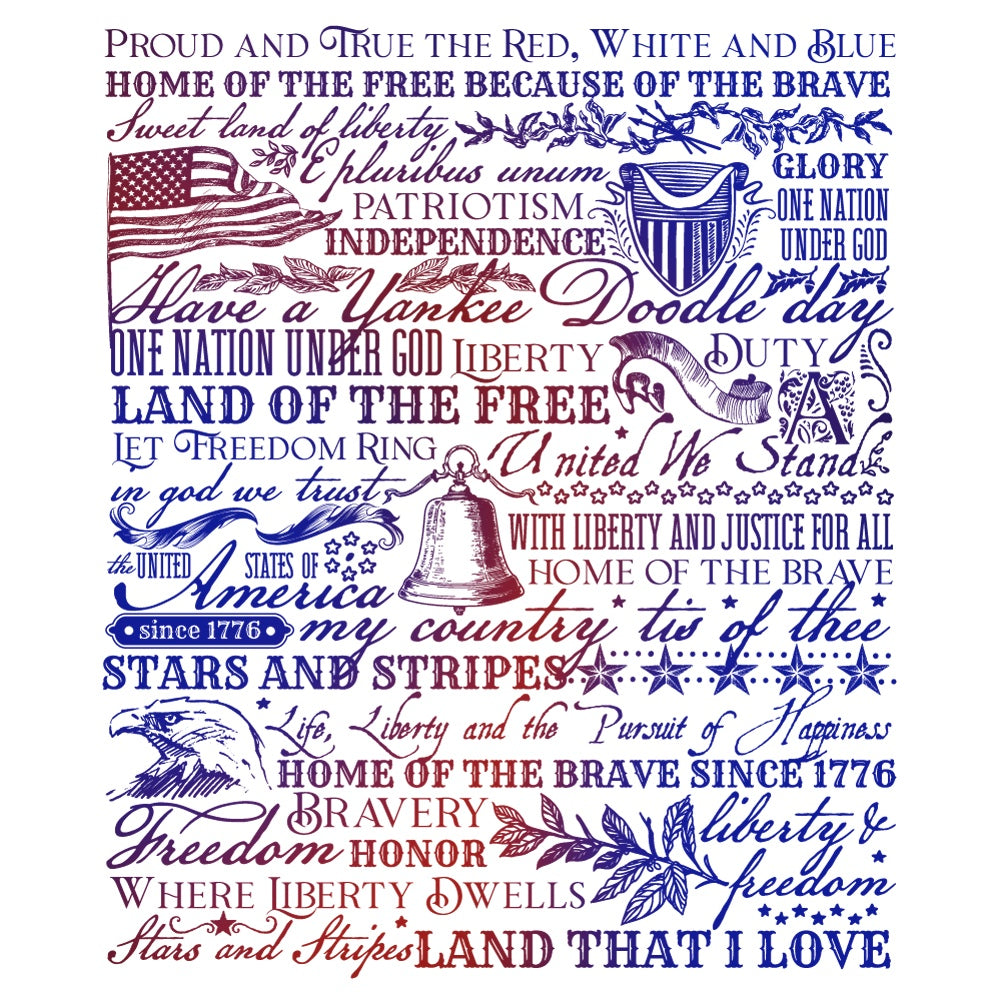 PROUD AND TRUE THE RED, WHITE AND BLUE
HOME OF THE FREE BECAUSE OF THE BRAVE
Sweet land of liberty
E pluribus unum
GLORY
PATRIOTISM
ONE NATION
INDEPENDENCE
UNDER GOD
Have a Yankee Doodle day
ONE NATION UNDER GOD LIBERTY
DUTY
A
LAND OF THE FREE
LET FREEDOM RING
United We Stand
in god we trust
WITH LIBERTY AND JUSTICE FOR ALL
the UNITED STATES OF
America
HOME OF THE BRAVE
since 1776
my country tis of thee
STARS AND STRIPES
Life, Liberty and the Pursuit of Happiness
HOME OF THE BRAVE SINCE 1776
BRAVERY
liberty &
Freedom HONOR
freedom
WHERE LIBERTY DWELLS
Stars and Stripes LAND THAT I LOVE